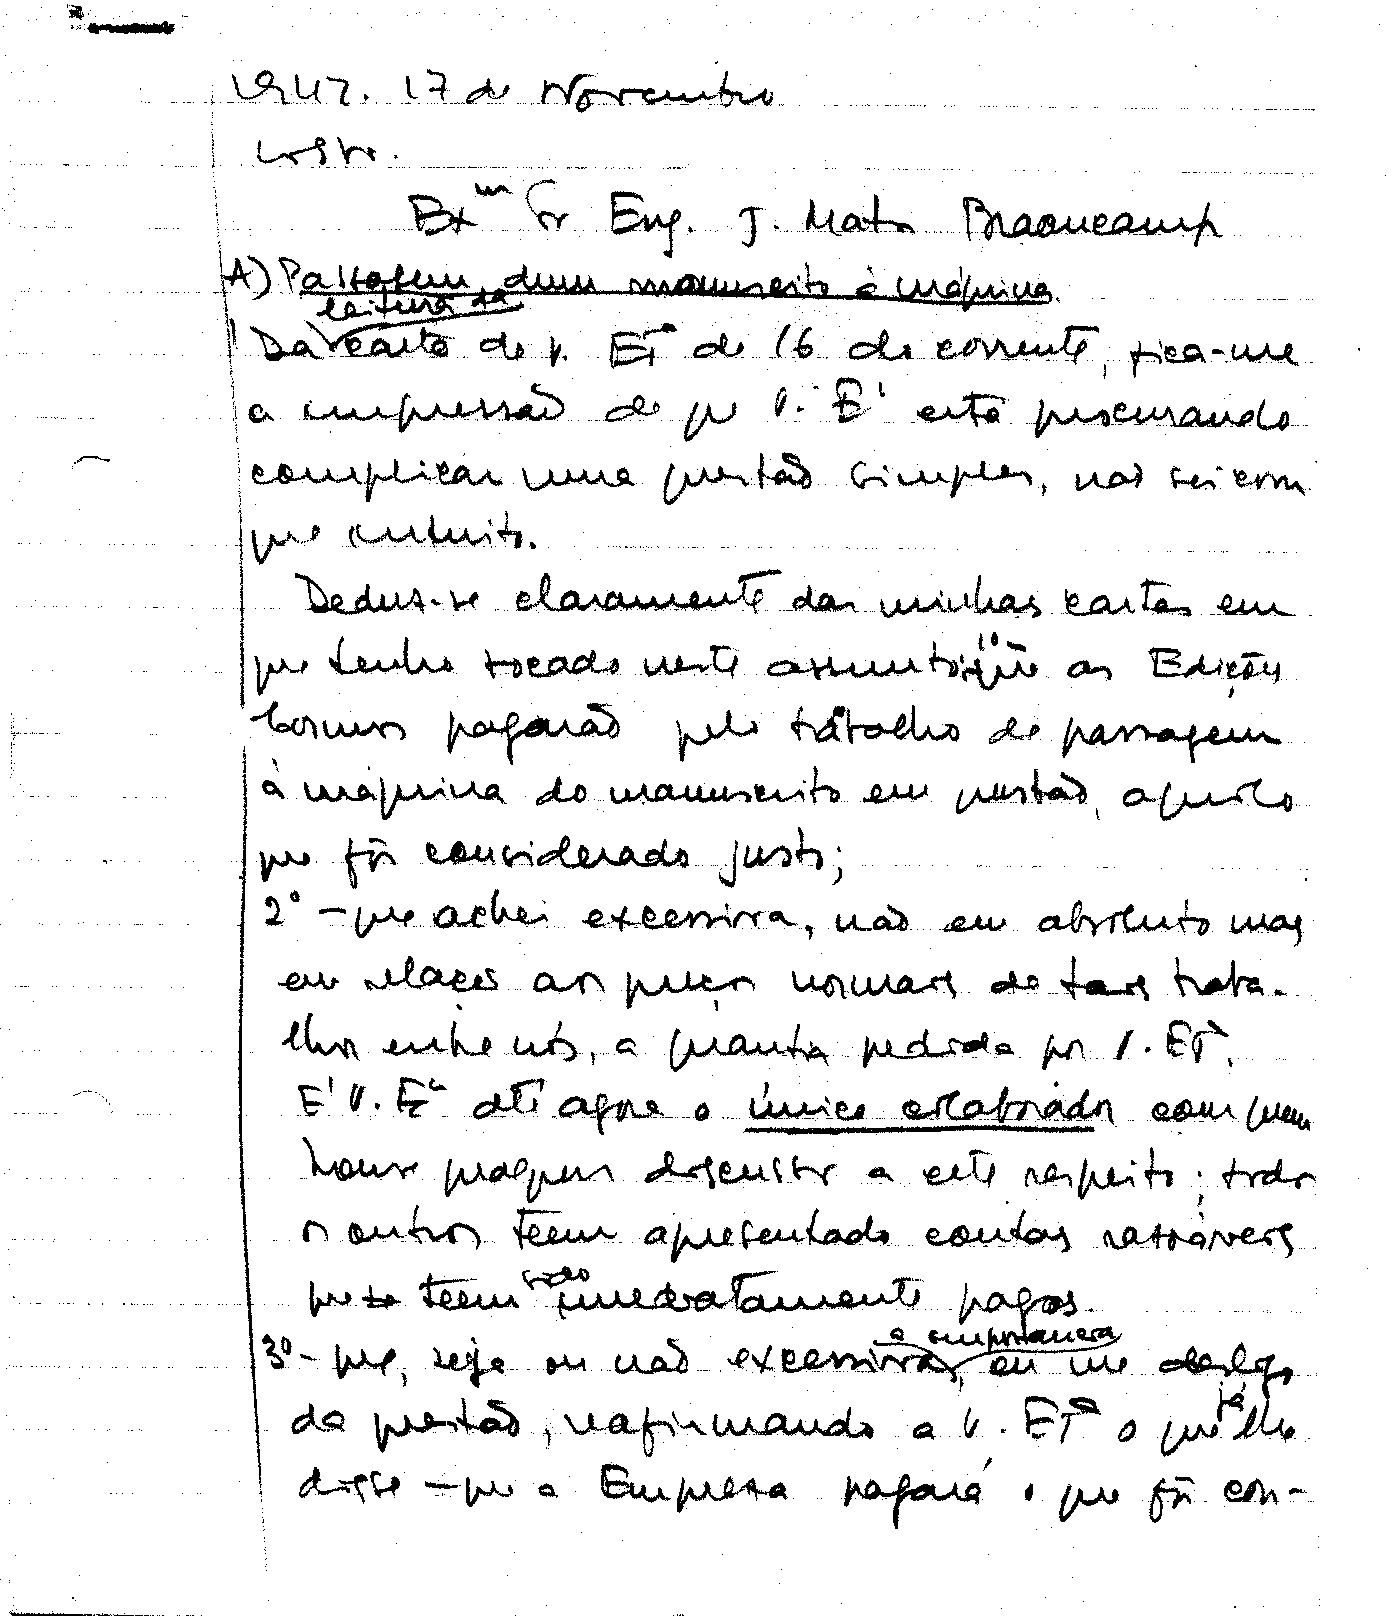 1942. 17 de Novembro
Exm Sr Eng. J. Mata Braamcamp
A) Passagem dum manuscrito à máquina
leitura da
Da carta de V. Exa de 16 do corrente, fica-me
a impressão de que V. Ex está procurando
complicar uma questão simples, não sei com
que intuito.
Deduz-se claramente das minhas cartas em
que tenho tocado neste assunto: 1º que as Edições
Cosmos pagarão pelo trabalho de passagem
à máquina do manuscrito em questão, aquilo
que fôr considerado justo;
2º - que achei excessiva, não em absoluto mas
em relação aos preços normais de tais traba-
lhos entre nós, a quantia pedida por V. Exa.
E' V. Exa até agora o único colaborador com quem
houve qualquer discussão a este respeito; todos
os outros teem apresentado contas razoáveis
que teem sido imediatamente pagas.
3º - que, seja ou não excessiva a importancia, eu me desligo
da questão, reafirmando a V. Exa o que já lhe
disse - que a Empresa pagará o que fôr con-